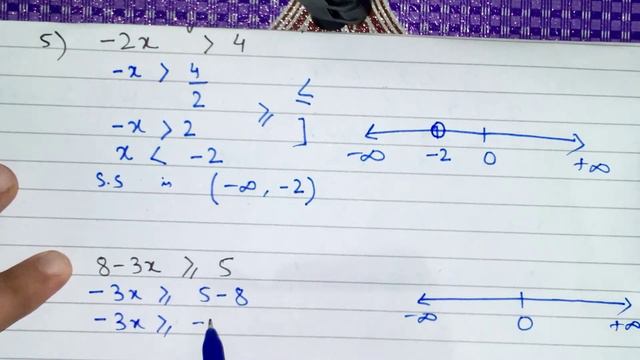 5) -2x > 4
-x > 4/2
≥ ≤ ]
-x > 2
x < -2
S.S is (-∞, -2)
-∞ -2 0 +∞
8-3x ≥ 5
-3x ≥ 5-8
-3x ≥ -
-∞ 0 +∞